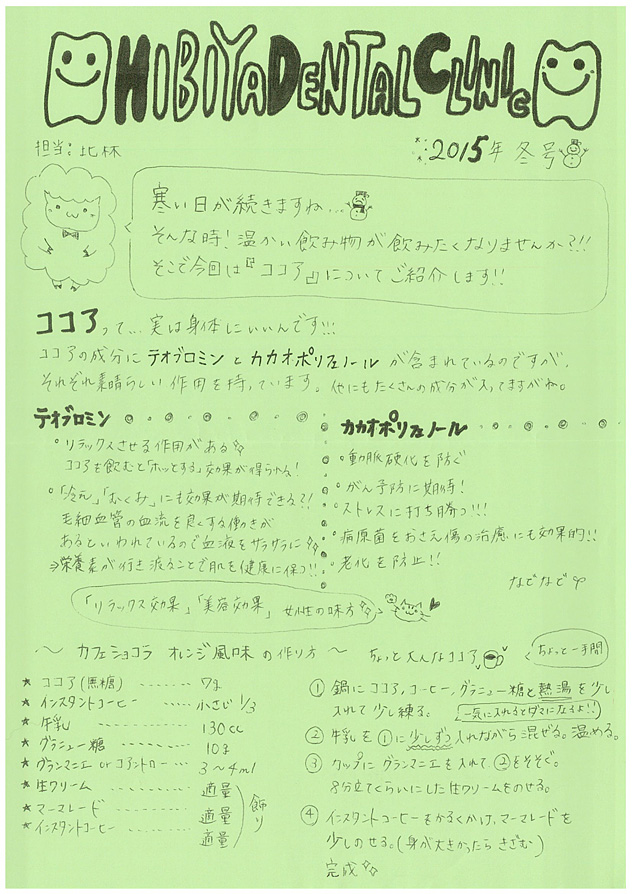 HIBIYA DENTAL CLINIC
担当:比林
2015年 冬号
寒い日が続きますね…
そんな時!温かい飲み物が飲みたくなりませんか?!!
そこで今回は『ココア』についてご紹介します!!
ココアって…実は身体にいいんです!!!
ココアの成分にテオブロミンとカカオポリフェノールが含まれているのですが、
それぞれ素晴らしい作用を持っています。他にもたくさんの成分が入ってますがね。
テオブロミン
○リラックスさせる作用がある
ココアを飲むと「ホッとする」効果が得られる!
○「冷え」「むくみ」にも効果が期待できる?!
毛細血管の血流を良くする働きが
あるといわれているので血液をサラサラに
⇒栄養素が行き渡ることで肌を健康に保つ!!
カカオポリフェノール
○動脈硬化を防ぐ
○がん予防に期待!
○ストレスに打ち勝つ!!!
○病原菌をおさえ傷の治癒にも効果的!!
○老化を防止!!
なでなで
「リラックス効果」「美容効果」女性の味方
〜 カフェショコラ オレンジ風味 の作り方 〜
ちょっと大人なココア
ちょっと一手間
★ ココア(無糖) ……… 7g
★ インスタントコーヒー ……… 小さじ1/3
★ 牛乳 ……… 130cc
★ グラニュー糖 ……… 10g
★ グランマニエ or コアントロー … 3〜4ml
★ 生クリーム ……… 適量
★ マーマレード ……… 適量
★ インスタントコーヒー ……… 適量
飾り
① 鍋にココア、コーヒー、グラニュー糖と熱湯を少し
入れて少し練る。(一気に入れるとダマになるよ!!)
② 牛乳を①に少しずつ入れながら混ぜる。温める。
③ カップにグランマニエを入れて②をそそぐ。
8分立てくらいにした生クリームをのせる。
④ インスタントコーヒーをかるくかけ、マーマレードを
少しのせる。(身が大きかったらきざむ)
完成